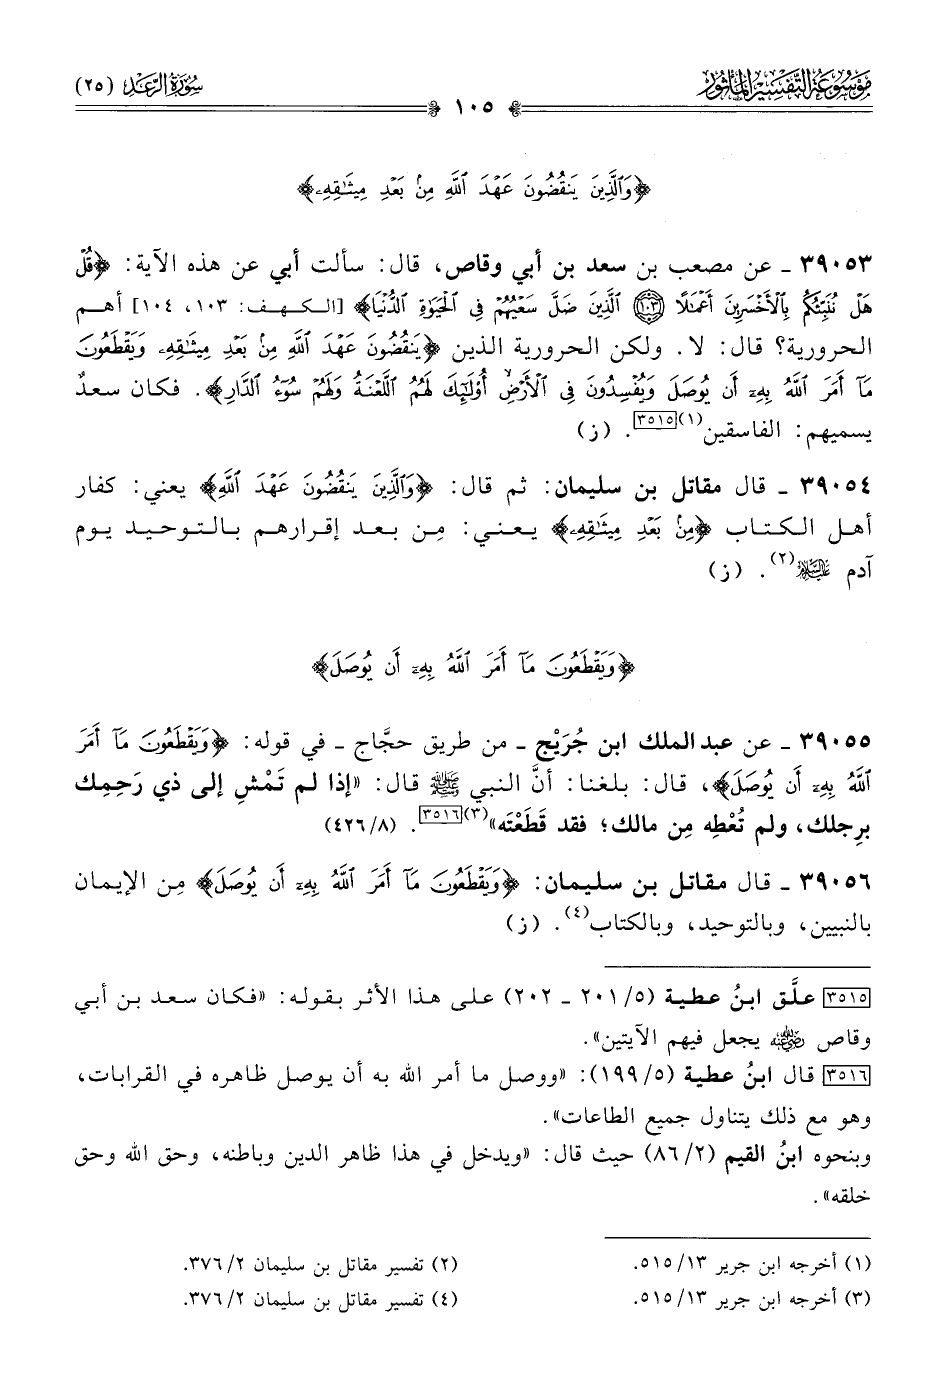 موسوعة التفسير المأثور
سورة الرعد (٢٥)
١٠٥
﴿وَالَّذِينَ يَنقُضُونَ عَهْدَ اللَّهِ مِنۢ بَعْدِ مِيثَٰقِهِۦ﴾
٣٩٠٥٣ ـ عن مصعب بن سعد بن أبي وقاص، قال: سألت أبي عن هذه الآية: ﴿قُلْ
هَلْ نُنَبِّئُكُم بِالْأَخْسَرِينَ أَعْمَٰلًا ١٠٣ الَّذِينَ ضَلَّ سَعْيُهُمْ فِي الْحَيَوٰةِ الدُّنْيَا﴾ [الكهف: ١٠٣، ١٠٤] أهم
الحرورية؟ قال: لا. ولكن الحرورية الذين ﴿يَنقُضُونَ عَهْدَ اللَّهِ مِنۢ بَعْدِ مِيثَٰقِهِۦ وَيَقْطَعُونَ
مَآ أَمَرَ اللَّهُ بِهِۦٓ أَن يُوصَلَ وَيُفْسِدُونَ فِي الْأَرْضِ أُوْلَٰٓئِكَ لَهُمُ اللَّعْنَةُ وَلَهُمْ سُوٓءُ الدَّارِ﴾. فكان سعدٌ
يسميهم: الفاسقين(١)[٣٥١٥]. (ز)
٣٩٠٥٤ ـ قال مقاتل بن سليمان: ثم قال: ﴿وَالَّذِينَ يَنقُضُونَ عَهْدَ اللَّهِ﴾ يعني: كفار
أهل الكتاب ﴿مِنۢ بَعْدِ مِيثَٰقِهِۦ﴾ يعني: مِن بعد إقرارهم بالتوحيد يوم
آدم عليه السلام(٢). (ز)
﴿وَيَقْطَعُونَ مَآ أَمَرَ اللَّهُ بِهِۦٓ أَن يُوصَلَ﴾
٣٩٠٥٥ ـ عن عبد الملك ابن جُرَيْج ـ من طريق حجَّاج ـ في قوله: ﴿وَيَقْطَعُونَ مَآ أَمَرَ
اللَّهُ بِهِۦٓ أَن يُوصَلَ﴾، قال: بلغنا: أنَّ النبي ﷺ قال: «إذا لم تَمْشِ إلى ذي رَحِمِك
برِجلك، ولم تُعْطِه مِن مالك؛ فقد قَطَعْتَه»(٣)[٣٥١٦]. (٨/ ٤٢٦)
٣٩٠٥٦ ـ قال مقاتل بن سليمان: ﴿وَيَقْطَعُونَ مَآ أَمَرَ اللَّهُ بِهِۦٓ أَن يُوصَلَ﴾ مِن الإيمان
بالنبيين، وبالتوحيد، وبالكتاب(٤). (ز)
[٣٥١٥] علَّق ابنُ عطية (٥/ ٢٠١ ـ ٢٠٢) على هذا الأثر بقوله: «فكان سعد بن أبي
وقاص رضي الله عنه يجعل فيهم الآيتين».
[٣٥١٦] قال ابنُ عطية (٥/ ١٩٩): «ووصل ما أمر الله به أن يوصل ظاهره في القرابات،
وهو مع ذلك يتناول جميع الطاعات».
وبنحوه ابنُ القيم (٢/ ٨٦) حيث قال: «ويدخل في هذا ظاهر الدين وباطنه، وحق الله وحق
خلقه».
(١) أخرجه ابن جرير ١٣/ ٥١٥.
(٢) تفسير مقاتل بن سليمان ٢/ ٣٧٦.
(٣) أخرجه ابن جرير ١٣/ ٥١٥.
(٤) تفسير مقاتل بن سليمان ٢/ ٣٧٦.